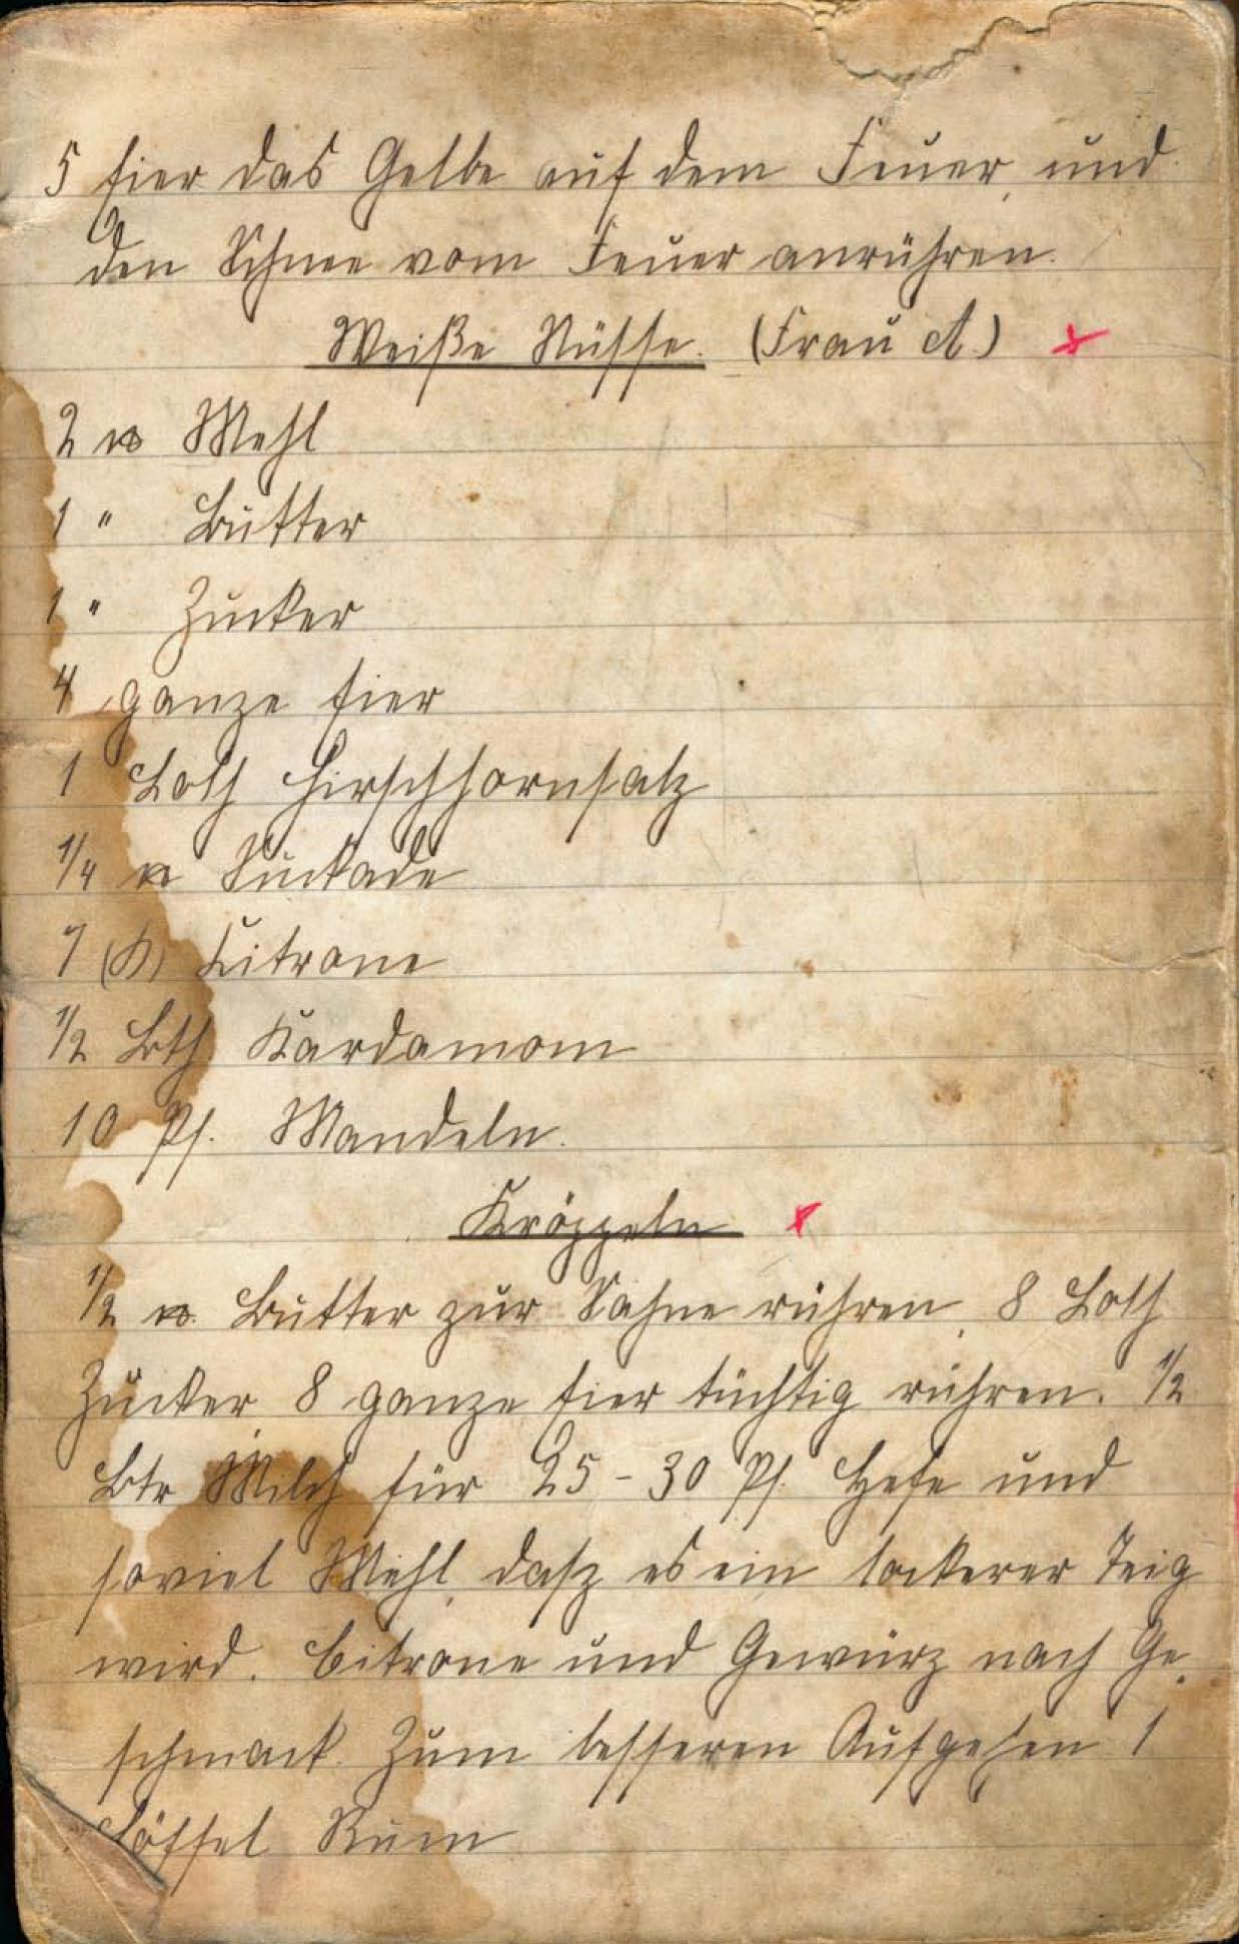 5 Eier das Gelbe auf dem Feuer, und
den Schnee vom Feuer anrühren.
Weiße Nüsse. (Frau A.)
2 ℔ Mehl
1 " Butter
1 " Zucker
4 ganze Eier
1 Loth Hirschhornsalz
1/4 ℔ Suckade
1 Citrone
1/2 Lth Kardamom
10 Pf. Mandeln.
Kröppeln
1/2 ℔ Butter zur Sahne rühren, 8 Loth
Zucker, 8 ganze Eier tüchtig rühren. 1/2
Ltr Milch für 25 - 30 Pf. Hefe und
soviel Mehl, dasz es ein lockerer Teig
wird. Citrone und Gewürz nach Ge-
schmack. Zum besseren Aufgehen 1
Löffel Rum